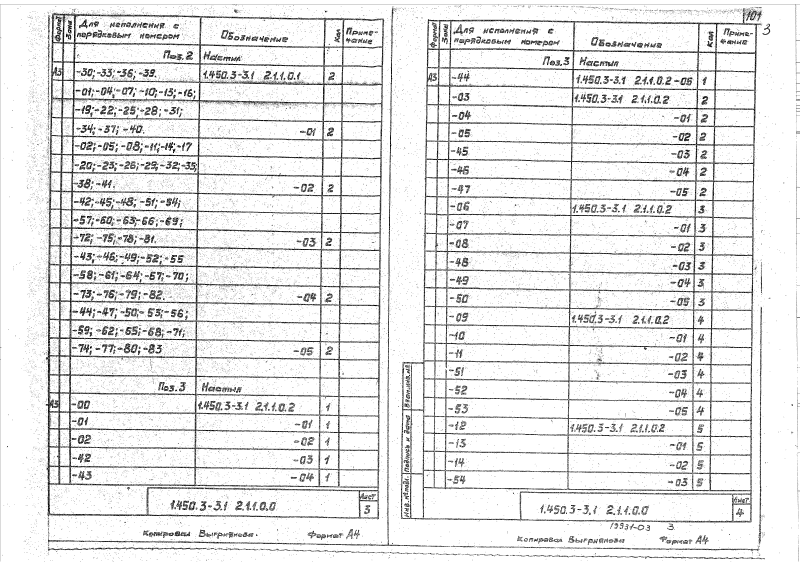 Формат Зона Для исполнения с порядковым номером Обозначение Кол Примечание
Поз.2 Настил
А3 -30;-33;-36;-39. 1.450.3-3.1 2.1.1.0.1 2
-01;-04;-07;-10;-13;-16;
-19;-22;-25;-28;-31;
-34;-37;-40. -01 2
-02;-05;-08;-11;-14;-17
-20;-23;-26;-29;-32;-35;
-38;-41. -02 2
-42;-45;-48;-51;-54;
-57;-60;-63;-66;-69;
-72;-75;-78;-81. -03 2
-43;-46;-49;-52;-55
-58;-61;-64;-67;-70;
-73;-76;-79;-82. -04 2
-44;-47;-50;-53;-56;
-59;-62;-65;-68;-71;
-74;-77;-80;-83 -05 2
Поз.3 Настил
А3 -00 1.450.3-3.1 2.1.1.0.2 1
-01 -01 1
-02 -02 1
-42 -03 1
-43 -04 1
1.450.3-3.1 2.1.1.0.0 Лист 3
Копировал Формат А4
101
3
Формат Зона Для исполнения с порядковым номером Обозначение Кол Примечание
Поз.3 Настил
А3 -44 1.450.3-3.1 2.1.1.0.2-05 1
-03 1.450.3-3.1 2.1.1.0.2 2
-04 -01 2
-05 -02 2
-45 -03 2
-46 -04 2
-47 -05 2
-06 1.450.3-3.1 2.1.1.0.2 3
-07 -01 3
-08 -02 3
-48 -03 3
-49 -04 3
-50 -05 3
-09 1.450.3-3.1 2.1.1.0.2 4
-10 -01 4
-11 -02 4
-51 -03 4
-52 -04 4
-53 -05 4
-12 1.450.3-3.1 2.1.1.0.2 5
-13 -01 5
-14 -02 5
-54 -03 5
Инв.№подл. Подпись и дата Взам.инв.№
1.450.3-3.1 2.1.1.0.0 Лист 4
19931-03 3
Копировал Формат А4